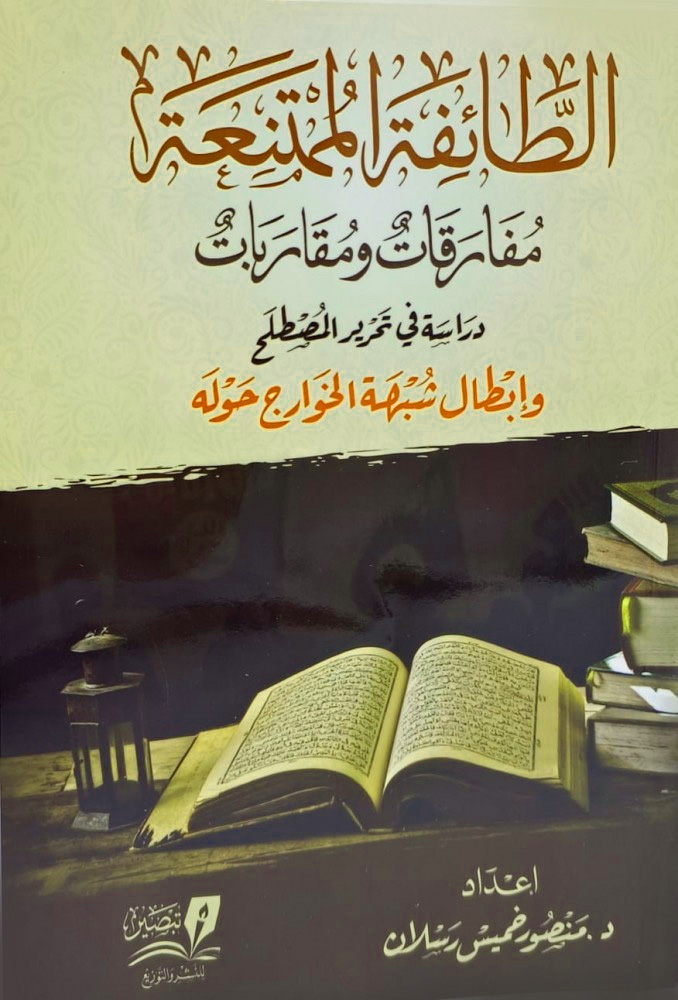 الطَّائِفَة المُمْتَنِعَة
مُفَارَقَاتٌ ومُقَارَبَاتٌ
دراسة في تحرير المُصْطلَح
وإبْطال شُبْهَة الخَوارج حَوْلَه
إعْدَاد
د. مَنْصُور خميس رَسْلان
تبصير
للنشر والتوزيع